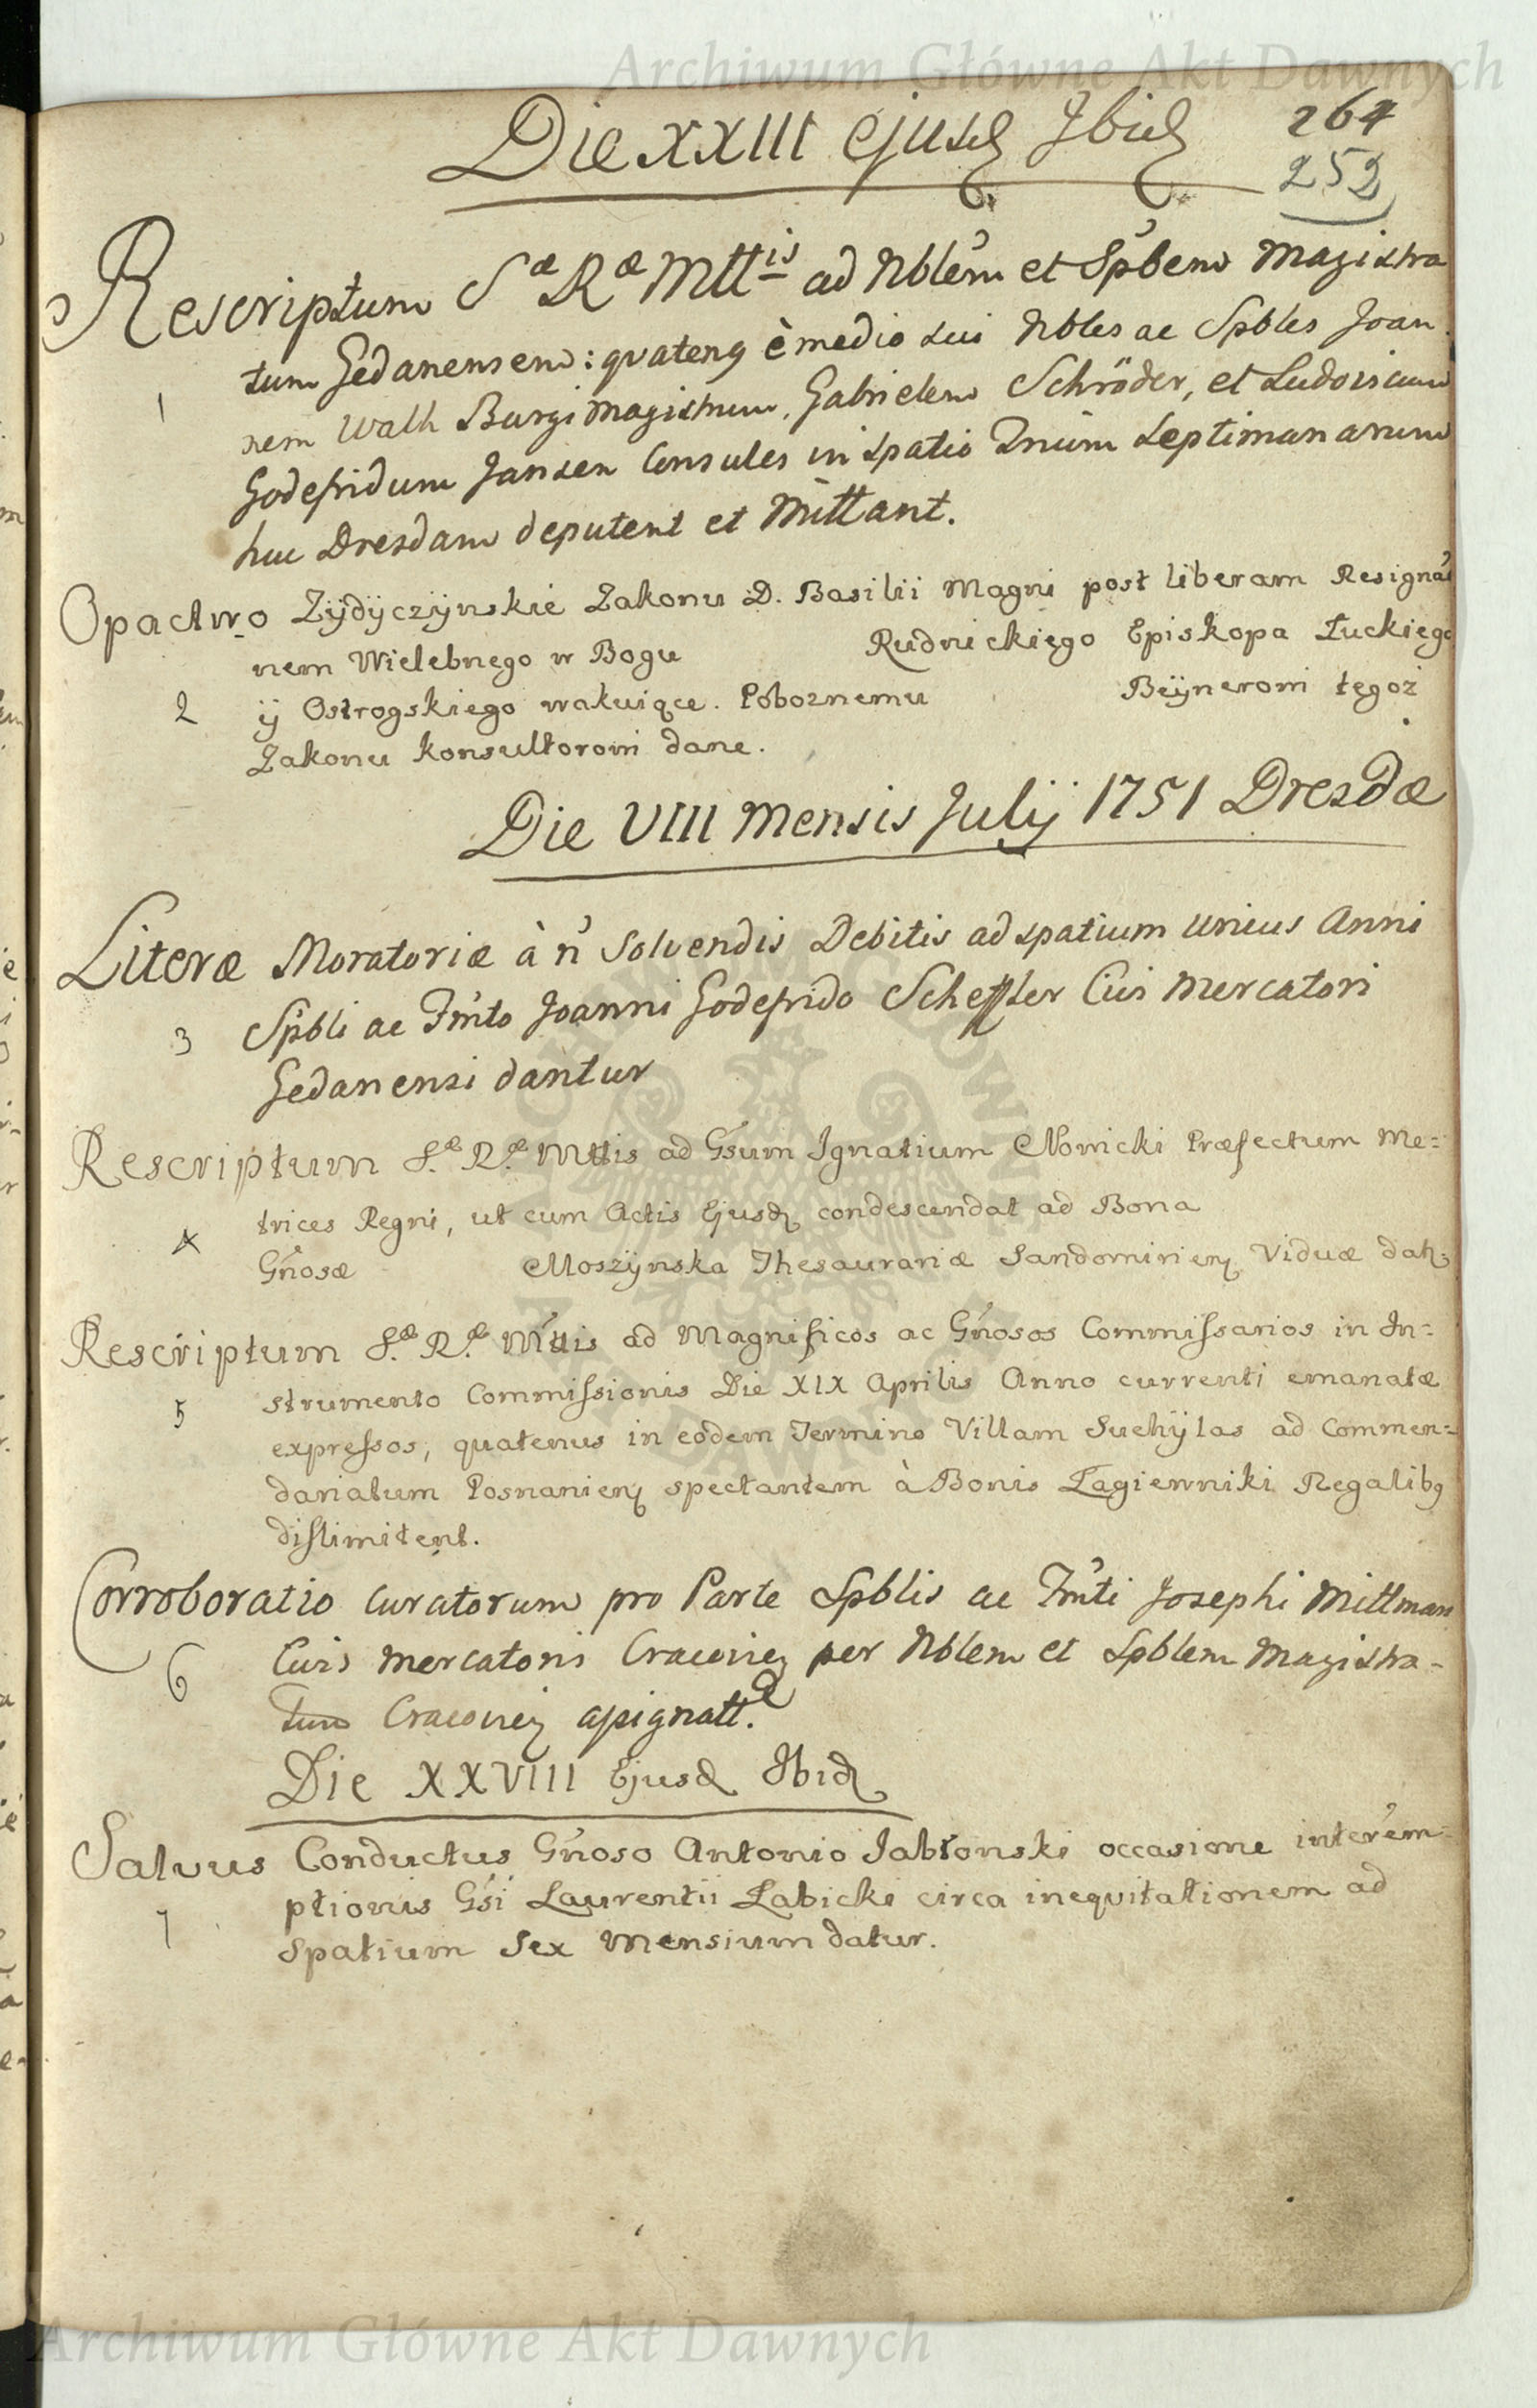 Archiwum Główne Akt Dawnych
Die XXIII ejusd Ibid
264
252
Rescriptum Sæ Ræ Mttis ad Nblem et Spblem Magistra
tum Gedanensem: quatenq è medio sui Nbles ac Spbles Joan
1
nem Walh Burgimagistrum, Gabrielem Schröder, et Ludovicum
Godefridum Jansen Consules in spatio Trium Septimanarum
huc Dresdam deputent et Mittant.
Opactwo Zÿdÿczÿnskie Zakonu D. Basilii Magni post liberam Resignão
nem Wielebnego w Bogu Rudnickięgo Episkopa Łuckiego
2
ÿ Ostrogskiego wakuiące. Póboznemu Beÿnerowi tegoż
Zakonu Konsultorowi dane.
Die VIII Mensis Julÿ 1751 Dresdæ
Literæ Moratoriæ à ñ Solvendis Debitis ad spatium unius Anni
3
Spbli ac Fmto Joanni Godefrido Scheffler Civi Mercatori
Gedanensi dantur
Rescriptum S.æ R.æ Mttis ad Gsum Ignatium Nowicki Præfectum Me=
trices Regni, ut cum Actis Ejusd condescendat ad Bona
4
Gñosæ Moszÿnska Thesaurariæ Sandomirien Viduæ dat
Rescriptum S.æ R.æ Mttis ad Magnificos ac Gñosos Commissarios in In=
strumento Commissionis Die XIX Aprilis Anno currenti emanatæ
5
expressos, quatenus in eodem Termino Villam Suchÿlas ad Commen=
dariatum Posnanien spectantem à Bonis Łagiewniki Regalibq
dislimitent.
Corroboratio Curatorum pro Parte Spblis ac Fmti Josephi Mittman
6
Civis Mercatoris Cracovien per Nblem et Spblem Magistra-
tum Cracovien assignatt.
Die XXVIII Ejusd Ibid
Salvus Conductus Gñoso Antonio Jabłonski occasione interem=
ptionis Gsi Laurentii Łabicki circa inequitationem ad
7
Spatium Sex Mensium datur.
Archiwum Główne Akt Dawnych